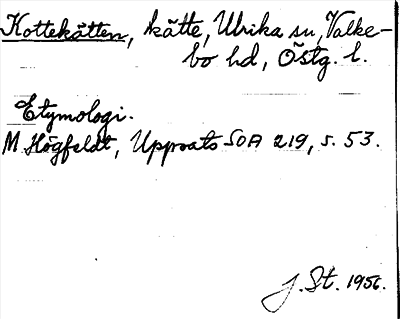 Kottekätten, kätte, Ulrika sn, Valke-
bo hd, Östg. l.
Etymologi.
M Högfeldt, Uppsats SOA 219, s. 53.
J. St. 1956.